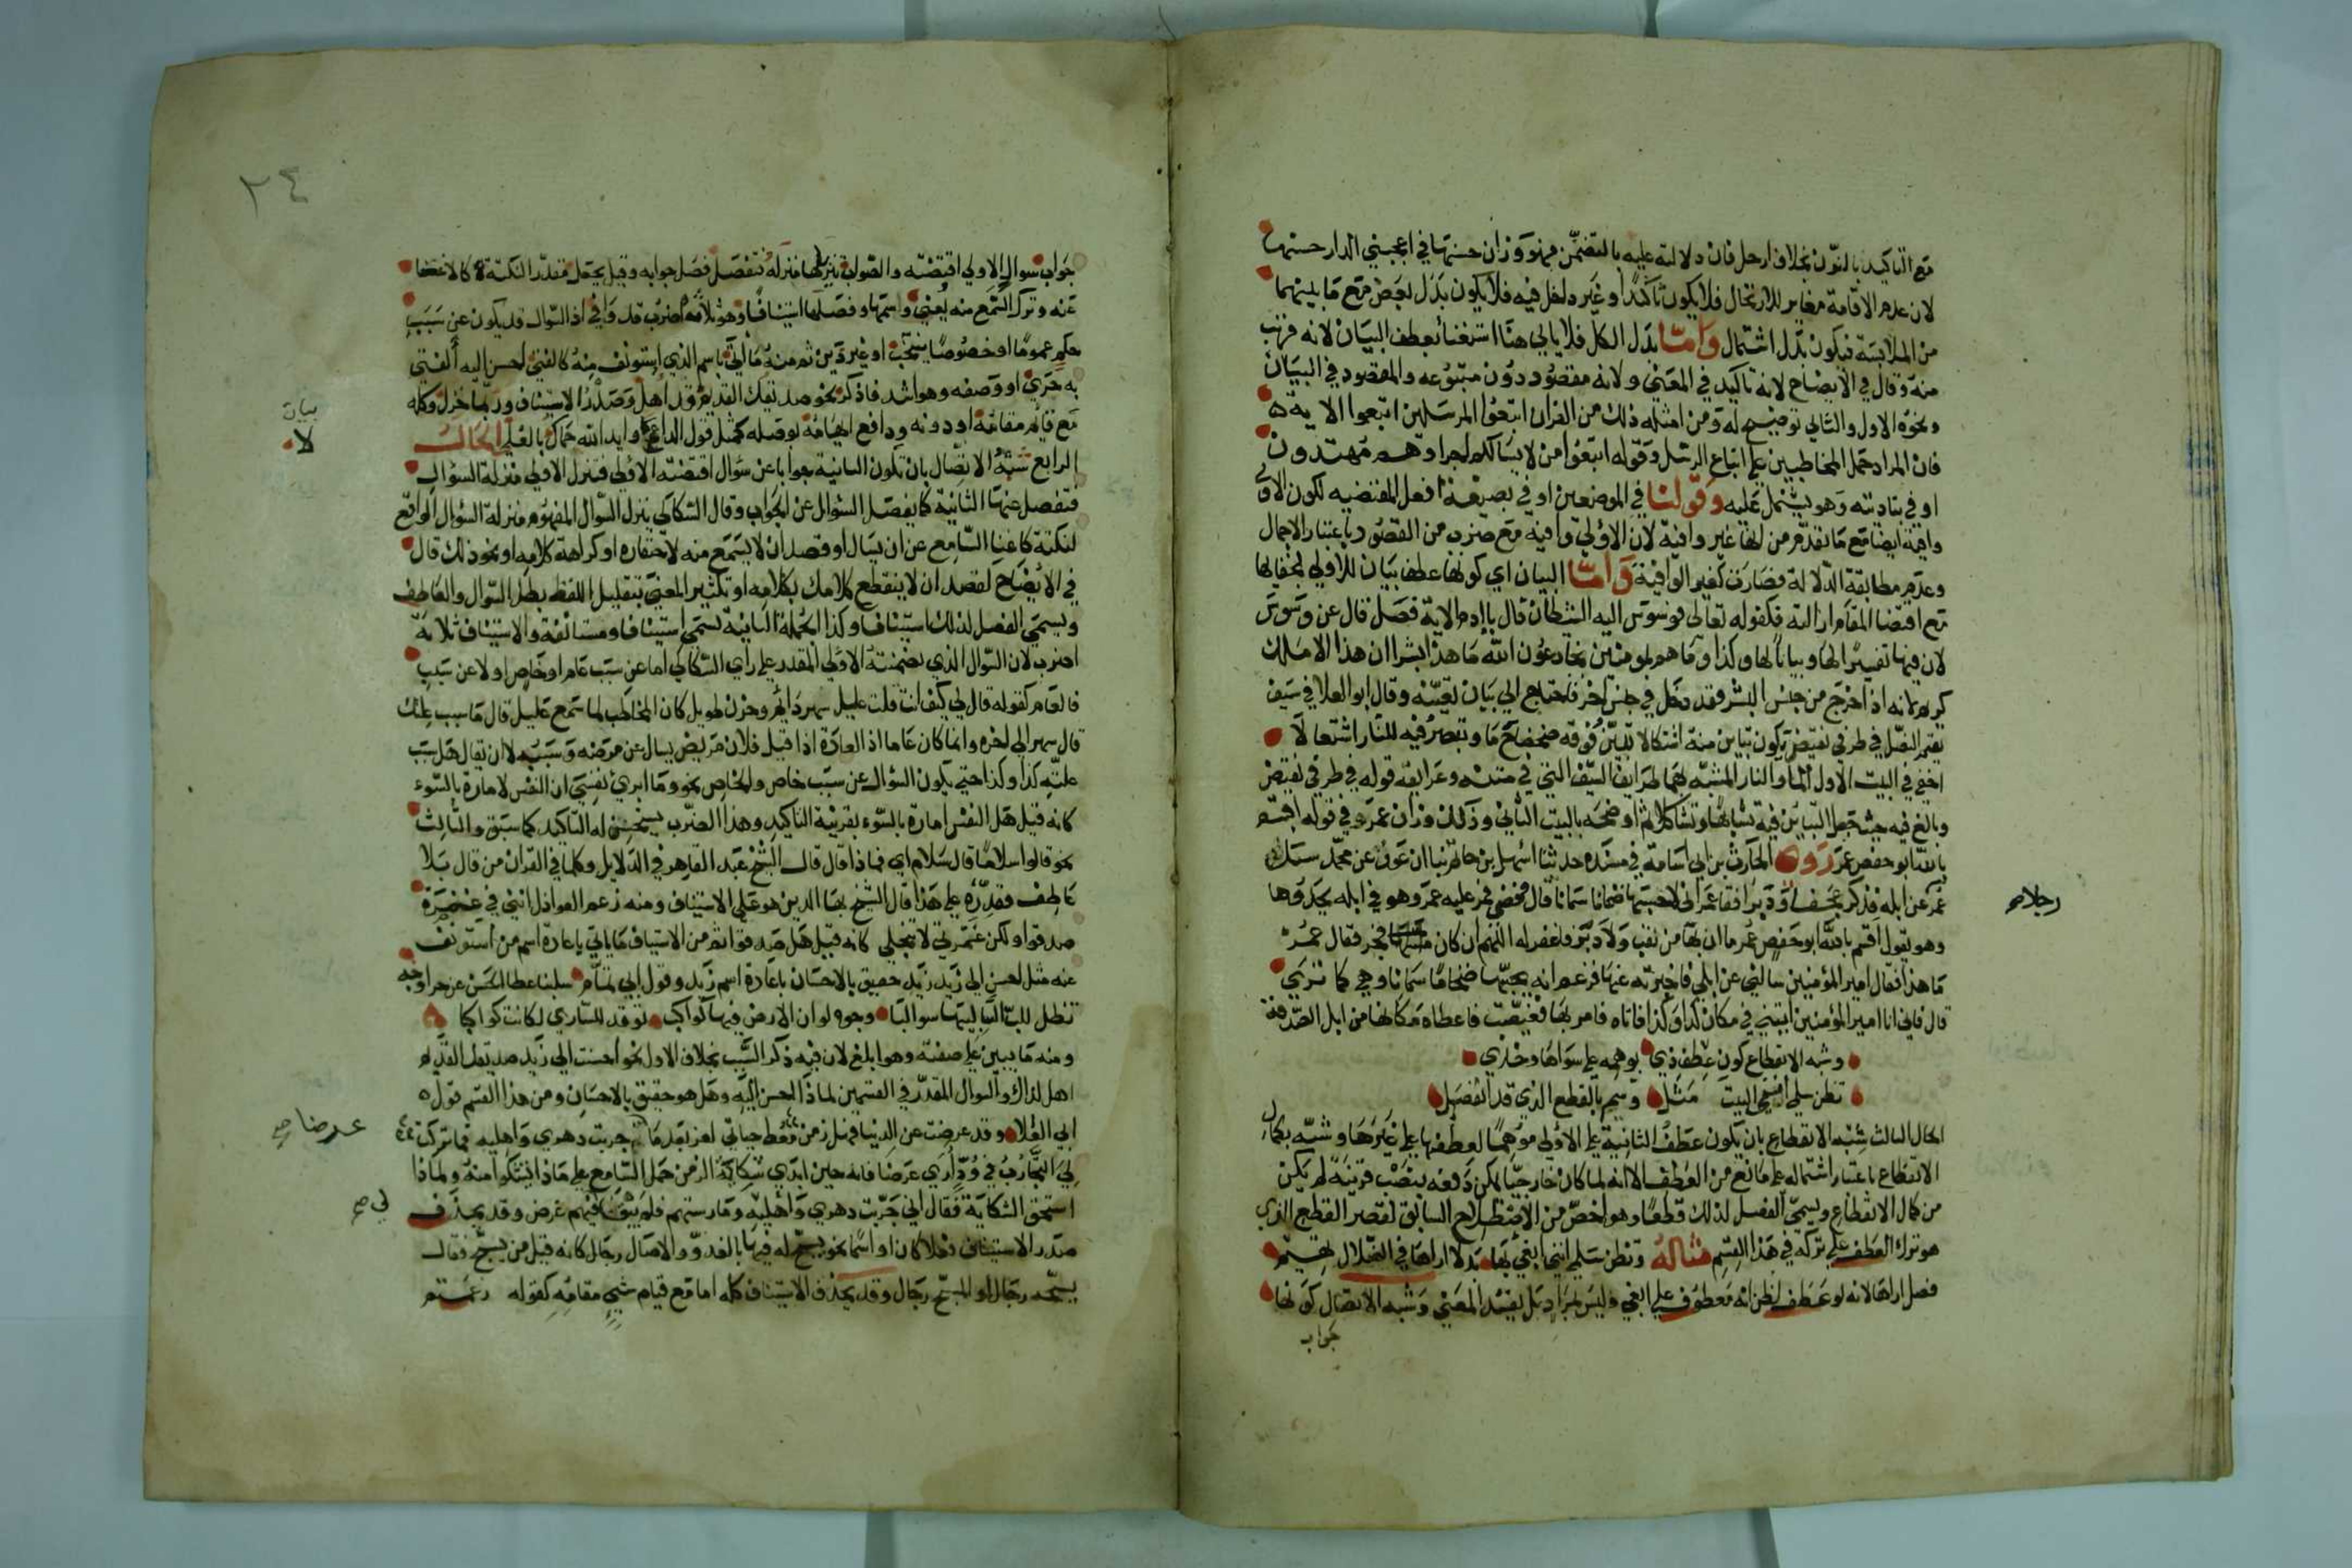 مع التاكيد بالنون بخلاف ارحل فان دلالته عليه بالتضمن فهو وزان حسنها في اعجبني الدار حسنها
لان عدم الاقامة مغاير للارتحال فلا يكون تاكيدا وغير داخل فيه فلا يكون بدل بعض مع ما بينهما
من الملابسة فيكون بدل اشتمال واما بدل الكل فلا ياتي هنا استغنا بعطف البيان لانه قريب
منه وقال في الايضاح لانه تاكيد في المعنى ولانه مقصود دون متبوعه والمقصود في البيان
ونحوه الاول والثاني توضيح له ومن امثله ذلك من القران اتبعوا المرسلين اتبعوا الاية
فان المراد حمل المخاطبين على اتباع الرسل وقوله اتبعوا من لا يسالكم اجرا وهم مهتدون
او في بتاديته وهو يشتمل عليه وقولنا في الموضعين اوفى بصيغة افعل المقتضيه لكون الاولى
وافية ايضا مع ما تقدم من انها غير وافية لان الاولى وافية مع ضرب من القصور باعتبار الاجمال
وعدم مطابقة الدلالة فصارت كغير الوافية واما البيان اي كونها عطف بيان للاولى لخفايها
مع اقتضا المقام ازالته فكقوله تعالى فوسوس اليه الشيطان قال ياادم الاية فصل قال عن وسوس
لان فيها تفسيرا لها وبيانا لها وكذا وما هم بمومنين يخادعون الله ما هذا بشرا ان هذا الا ملك
كريم لانه اذا خرج من جنس البشر فقد دخل في جنس اخر فاحتاج الى بيان تعيينه وقال ابو العلا في سيف
يقيم النصل في طرفي نقيض يكون تباين منه اشتكالا تبين فوقه ضحضاح ما وتبصر فيه للنار اشتعالا
اخفى في البيت الاول الما والنار المشبه بهما طرايق السيف التي في متنه وغرابته قوله في طرفي نقيض
وبالغ فيه حيث جعل التباين فيه تشابها وتشاكلا ثم اوضحه بالبيت الثاني وذلك وزان عمر في قوله اقسم
بالله ابو حفص عمر روى الحارث بن ابي اسامة في مسنده حدثنا اسهل بن حاتم نبا ابن عون عن محمد سال
عمر عن ابله فذكر عجفا ودبرا فقا عمر اني لاحسبها ضخاما سمانا قال فمضى فمر عليه عمر وهو في ابله يحدوها
رجلا صح
وهو يقول اقسم بالله ابو حفص عمر ما ان بها من نقب ولا دبر فاغفر له اللهم ان كان فجر فقال عمر
ما هذا فقال امير المؤمنين سالني عن ابلي فاخبرته عنها فزعم انه يحسبها ضخاما سمانا وهي كما ترى
قال فاني انا امير المؤمنين ايتني في مكان كذا وكذا فاتاه فامر بها فغيبت فاعطاه مكانها من ابل الصدقة
وشبه الانقطاع كون عطف ذي يوهمه على سواها وخذي
تظن سلمى انني البيت مثل وسم بالقطع الذي قد انفصل
الحال الثالث شبه الانقطاع بان يكون عطف الثانية على الاولى موهما لعطفها على غيرها وشبه بكمال
الانقطاع باعتبار اشتماله على مانع من العطف الا انه لما كان خارجيا يمكن دفعه بنصب قرينة لم يكن
من كمال الانقطاع ويسمى الفصل لذلك قطعا وهو اخص من الاصطلاح السابق لقصر القطع الذي
هو ترك العطف على تركه في هذا القسم مثاله وتظن سلمى انني ابغي بها بدلا اراها في الضلال تهيم
فصل اراها لانه لو عطف لظن انه معطوف على ابغي وليس بمراد بل يفسد المعنى وشبه الاتصال كونها
جواب
٢٤
جواب سوال الاولى اقتضته والصواب تنزلها منزله فتفصل فصل جوابه وقيل يحتمل مقدرا لنكتة كالاغنا
عنه وترك السمع منه يعني واسمها وفصلها استينافا وهو ثلاثة اضرب قد وافى اذ السوال قد يكون عن سبب
حكم عموما او خصوصا يستحب او غير ذين ثم منه ما اتى باسم الذي استونف منه كالفتى احسن اليه الفتى
به حرى او وصفه وهو اشد فاذكر نحو صديقك القديم قد اهل وصدر الاستيناف وربما خزل وكله
مع قايم مقامه او دونه ودافع ايهامه توصله كمثل قول الداع لا وايد الله حماك بالعلى الحال
بيان
لا
الرابع شبه الاتصال بان تكون الثانية جوابا عن سوال اقتضته الاولى فتنزل الاولى منزلة السؤال
فتفصل عنها الثانية كما يفصل السؤال عن الجواب وقال السكاكي ينزل السؤال المفهوم منزلة السؤال الواقع
لنكتة كاغنا السامع عن ان يسال او قصد ان لا يسمع منه لاحتقاره او كراهة كلامه او نحو ذلك قال
في الايضاح لقصد ان لا ينقطع كلامك بكلامه او تكثير المعنى بتقليل اللفظ بطل السوال والعاطف
ويسمى الفصل لذلك استينافا وكذا الجملة الثانية تسمى استينافا ومستانفة والاستيناف ثلاثة
اضرب لان السوال الذي تضمنته الاولى المقدر على راي السكاكي اما عن سبب عام او خاص او لا عن سبب
فالعام كقوله قال لي كيف انت قلت عليل سهر دائم وحزن طويل كان المخاطب لما سمع عليل قال ما سبب علتك
قال سهر الى اخره وانما كان عاما اذ العادة اذا قيل فلان مريض يسال عن مرضه وسببه لا ان يقال هل سبب
علته كذا وكذا حتى يكون السؤال عن سبب خاص والخاص نحو وما ابرئ نفسي ان النفس لامارة بالسوء
كانه قيل هل النفس امارة بالسوء بقرينة التاكيد وهذا الضرب يستحسن له التاكيد كما سبق والثالث
نحو قالوا سلاما قال سلام اي فماذا قال قال الشيخ عبد القاهر في الدلايل وكلما في القران من قال بلا
عاطف فقدره على هذا قال الشيخ بها الدين هو على الاستيناف ومنه زعم العواذل انني في غمرة
صدقوا ولكن غمرتي لا تنجلي كانه قيل هل صدقوا ثم من الاستيناف ما ياتي باعادة اسم من استونف
عنه مثل احسن الى زيد زيد حقيق بالاحسان باعادة اسم زيد وقول ابي تمام سلبنا غطا الحسن عن حر اوجه
تظل للب السالبيها سوالبا وجوه لو ان الارض فيها كواكب توقد للساري لكانت كواكبا
ومنه ما يبنى على صفته وهو ابلغ لان فيه ذكر السبب بخلاف الاول نحو احسنت الى زيد صديقك القديم
اهل لذاك والسوال المقدر في القسمين لماذا احسن اليه وهل هو حقيق بالاحسان ومن هذا القسم قول
ابي العلا وقد عرضت عن الدنيا فهل زمن معط حياتي لغر بعد ما جربت دهري واهليه فما تركت
عرضا صح
لي التجارب في ود امرئ عرضا فانه حين ابدى شكاية الزمن حمل السامع على ماذا تشكوا منه ولماذا
استحق الشكاية فقال اني جربت دهري واهليه ومارستهم فلم يبق فيهم غرض وقد يحذف
لي صح
صدر الاستيناف فعلا كان او اسما نحو يسبح له فيها بالغدو والاصال رجال كانه قيل من يسبح فقال
يسبحه رجال او المسبح رجال وقد يحذف الاستيناف كله اما مع قيام شيء مقامه كقوله زعمتم